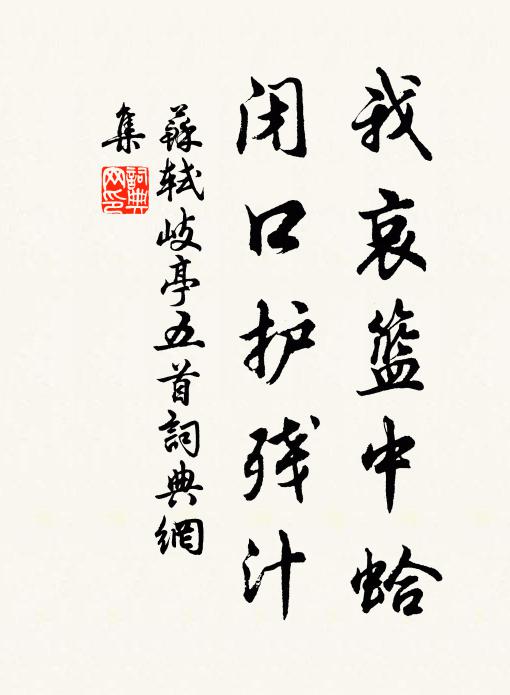 我哀籃中蛤
闭口护残汁
蘇軾岐亭五首詞典網
集
詞典
网印